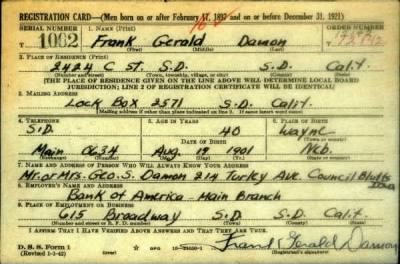 REGISTRATION CARD—(Men born on or after February 17, 1897 and on or before December 31, 1921)
SERIAL NUMBER 1. NAME (Print) ORDER NUMBER
1062 Frank Gerald Damon
(First) (Middle) (Last)
2. PLACE OF RESIDENCE (Print)
2424 C St. S.D. S.D. Calif.
(Number and street) (Town, township, village, or city) (County) (State)
[THE PLACE OF RESIDENCE GIVEN ON THE LINE ABOVE WILL DETERMINE LOCAL BOARD
JURISDICTION; LINE 2 OF REGISTRATION CERTIFICATE WILL BE IDENTICAL]
3. MAILING ADDRESS
Lock Box 2571 S.D. Calif.
[Mailing address if other than place indicated on line 2. If same insert word same]
4. TELEPHONE 5. AGE IN YEARS 6. PLACE OF BIRTH
S.D. 40 Wayne
DATE OF BIRTH (Town or county)
Main 0634 Aug. 19 1901 Neb.
(Mo.) (Day) (Yr.) (State or country)
7. NAME AND ADDRESS OF PERSON WHO WILL ALWAYS KNOW YOUR ADDRESS
Mr. or Mrs. Geo. S. Damon 214 Turley Ave. Council Bluffs Iowa
8. EMPLOYER'S NAME AND ADDRESS
Bank of America - Main Branch
9. PLACE OF EMPLOYMENT OR BUSINESS
615 Broadway S.D. S.D. Calif.
(Number and street or R. F. D. number) (Town) (County) (State)
I AFFIRM THAT I HAVE VERIFIED ABOVE ANSWERS AND THAT THEY ARE TRUE.
D. S. S. Form 1
(Revised 1-1-42) (over) Frank Gerald Damon